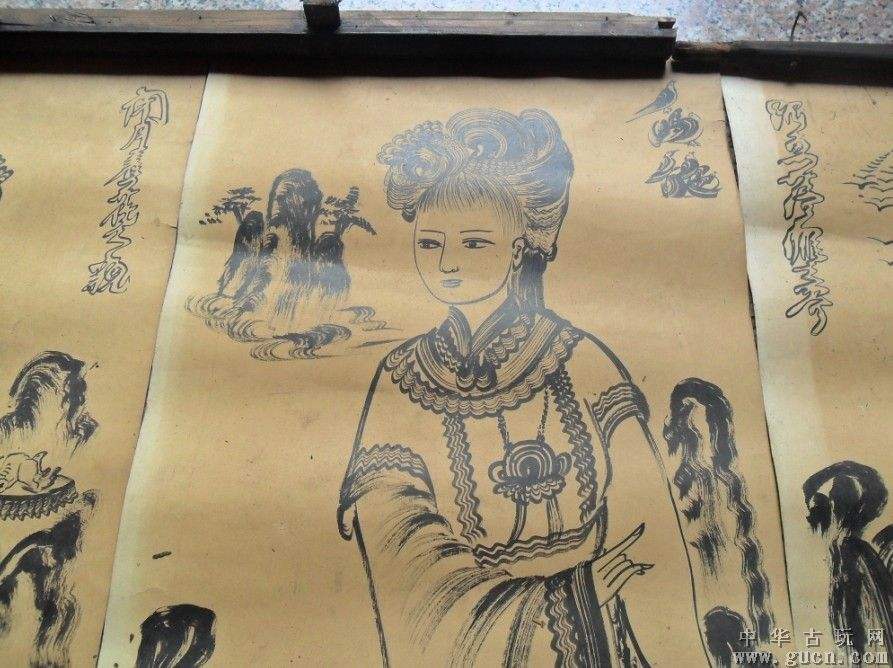 闭月羞花之貌
沉鱼落雁之容
中华古玩网
www.gucn.com